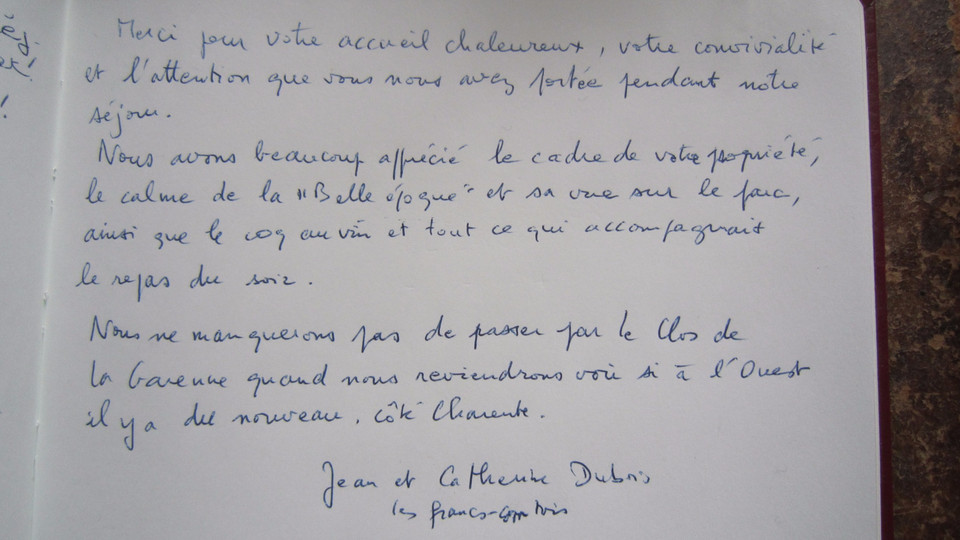 Merci pour votre accueil chaleureux, votre convivialité
et l'attention que vous nous avez portée pendant notre
séjour.
Nous avons beaucoup apprécié le cadre de votre propriété,
le calme de la "Belle époque" et sa vue sur le parc,
ainsi que le coq au vin et tout ce qui accompagnait
le repas du soir.
Nous ne manquerons pas de passer par le Clos de
la Garenne quand nous reviendrons voir si à l'Ouest
il y a du nouveau, côté Charente.
Jean et Catherine Dubois
les francs-comtois